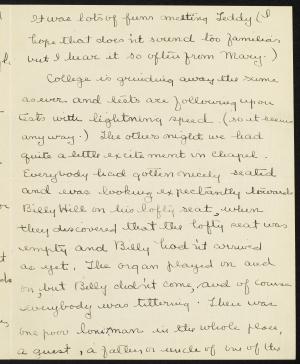 It was lots of fun meeting Teddy (I
hope that doesn't sound too familiar
but I hear it so often from Mary.)
College is grinding away the same
as ever and tests are following upon
tests with lightning speed (so it seems
anyway.) The other night we had
quite a little excitement in chapel.
Everybody had gotten nicely seated
and was looking expectantly towards
Billy Hill on his lofty seat, when
they discovered that the lofty seat was
empty and Billy had'nt arrived
as yet. The organ played on and
on, but Billy didn't come, and of course
everybody was tittering. There was
one poor man in the whole place,
a guest, a father or uncle of one of the